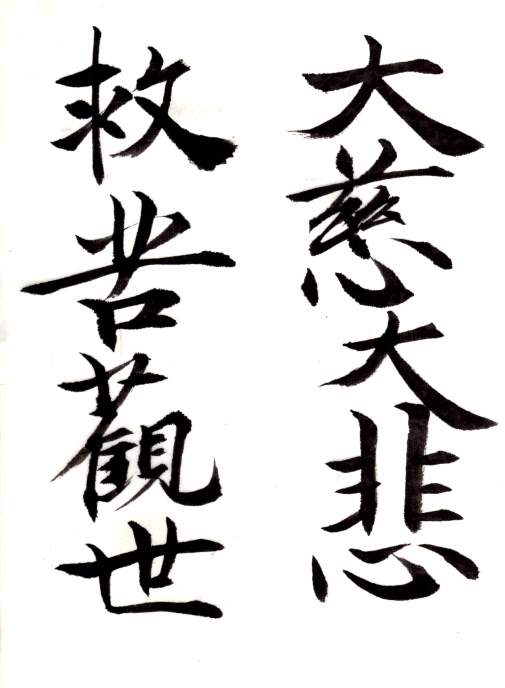 大慈大悲
救苦觀世